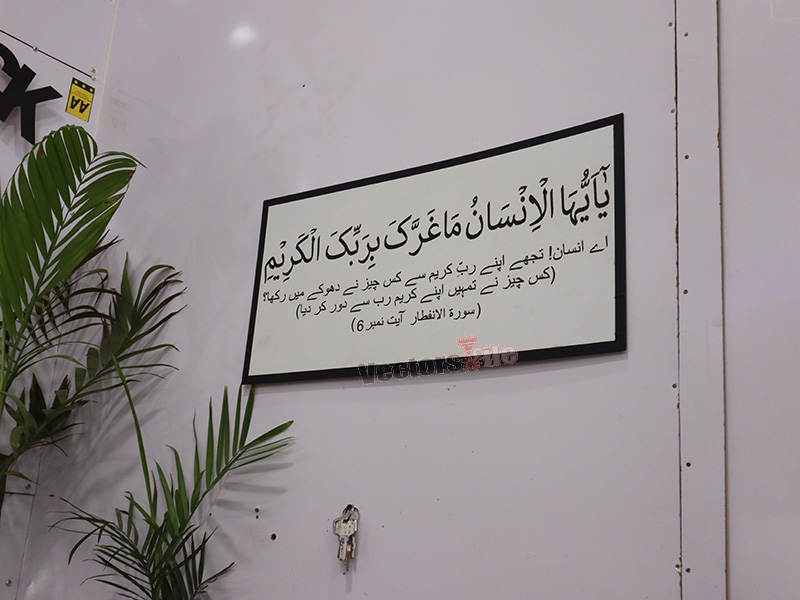 یٰۤاَیُّهَا الْاِنْسَانُ مَا غَرَّکَ بِرَبِّکَ الْکَرِیْمِ
اے انسان! تجھے اپنے ربّ کریم سے کس چیز نے دھوکے میں رکھا؟
(کس چیز نے تمہیں اپنے کریم رب سے دور کر دیا)
(سورۃ الانفطار آیت نمبر 6)
AA